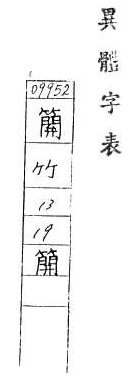 異體字表
09952
竹
13
19